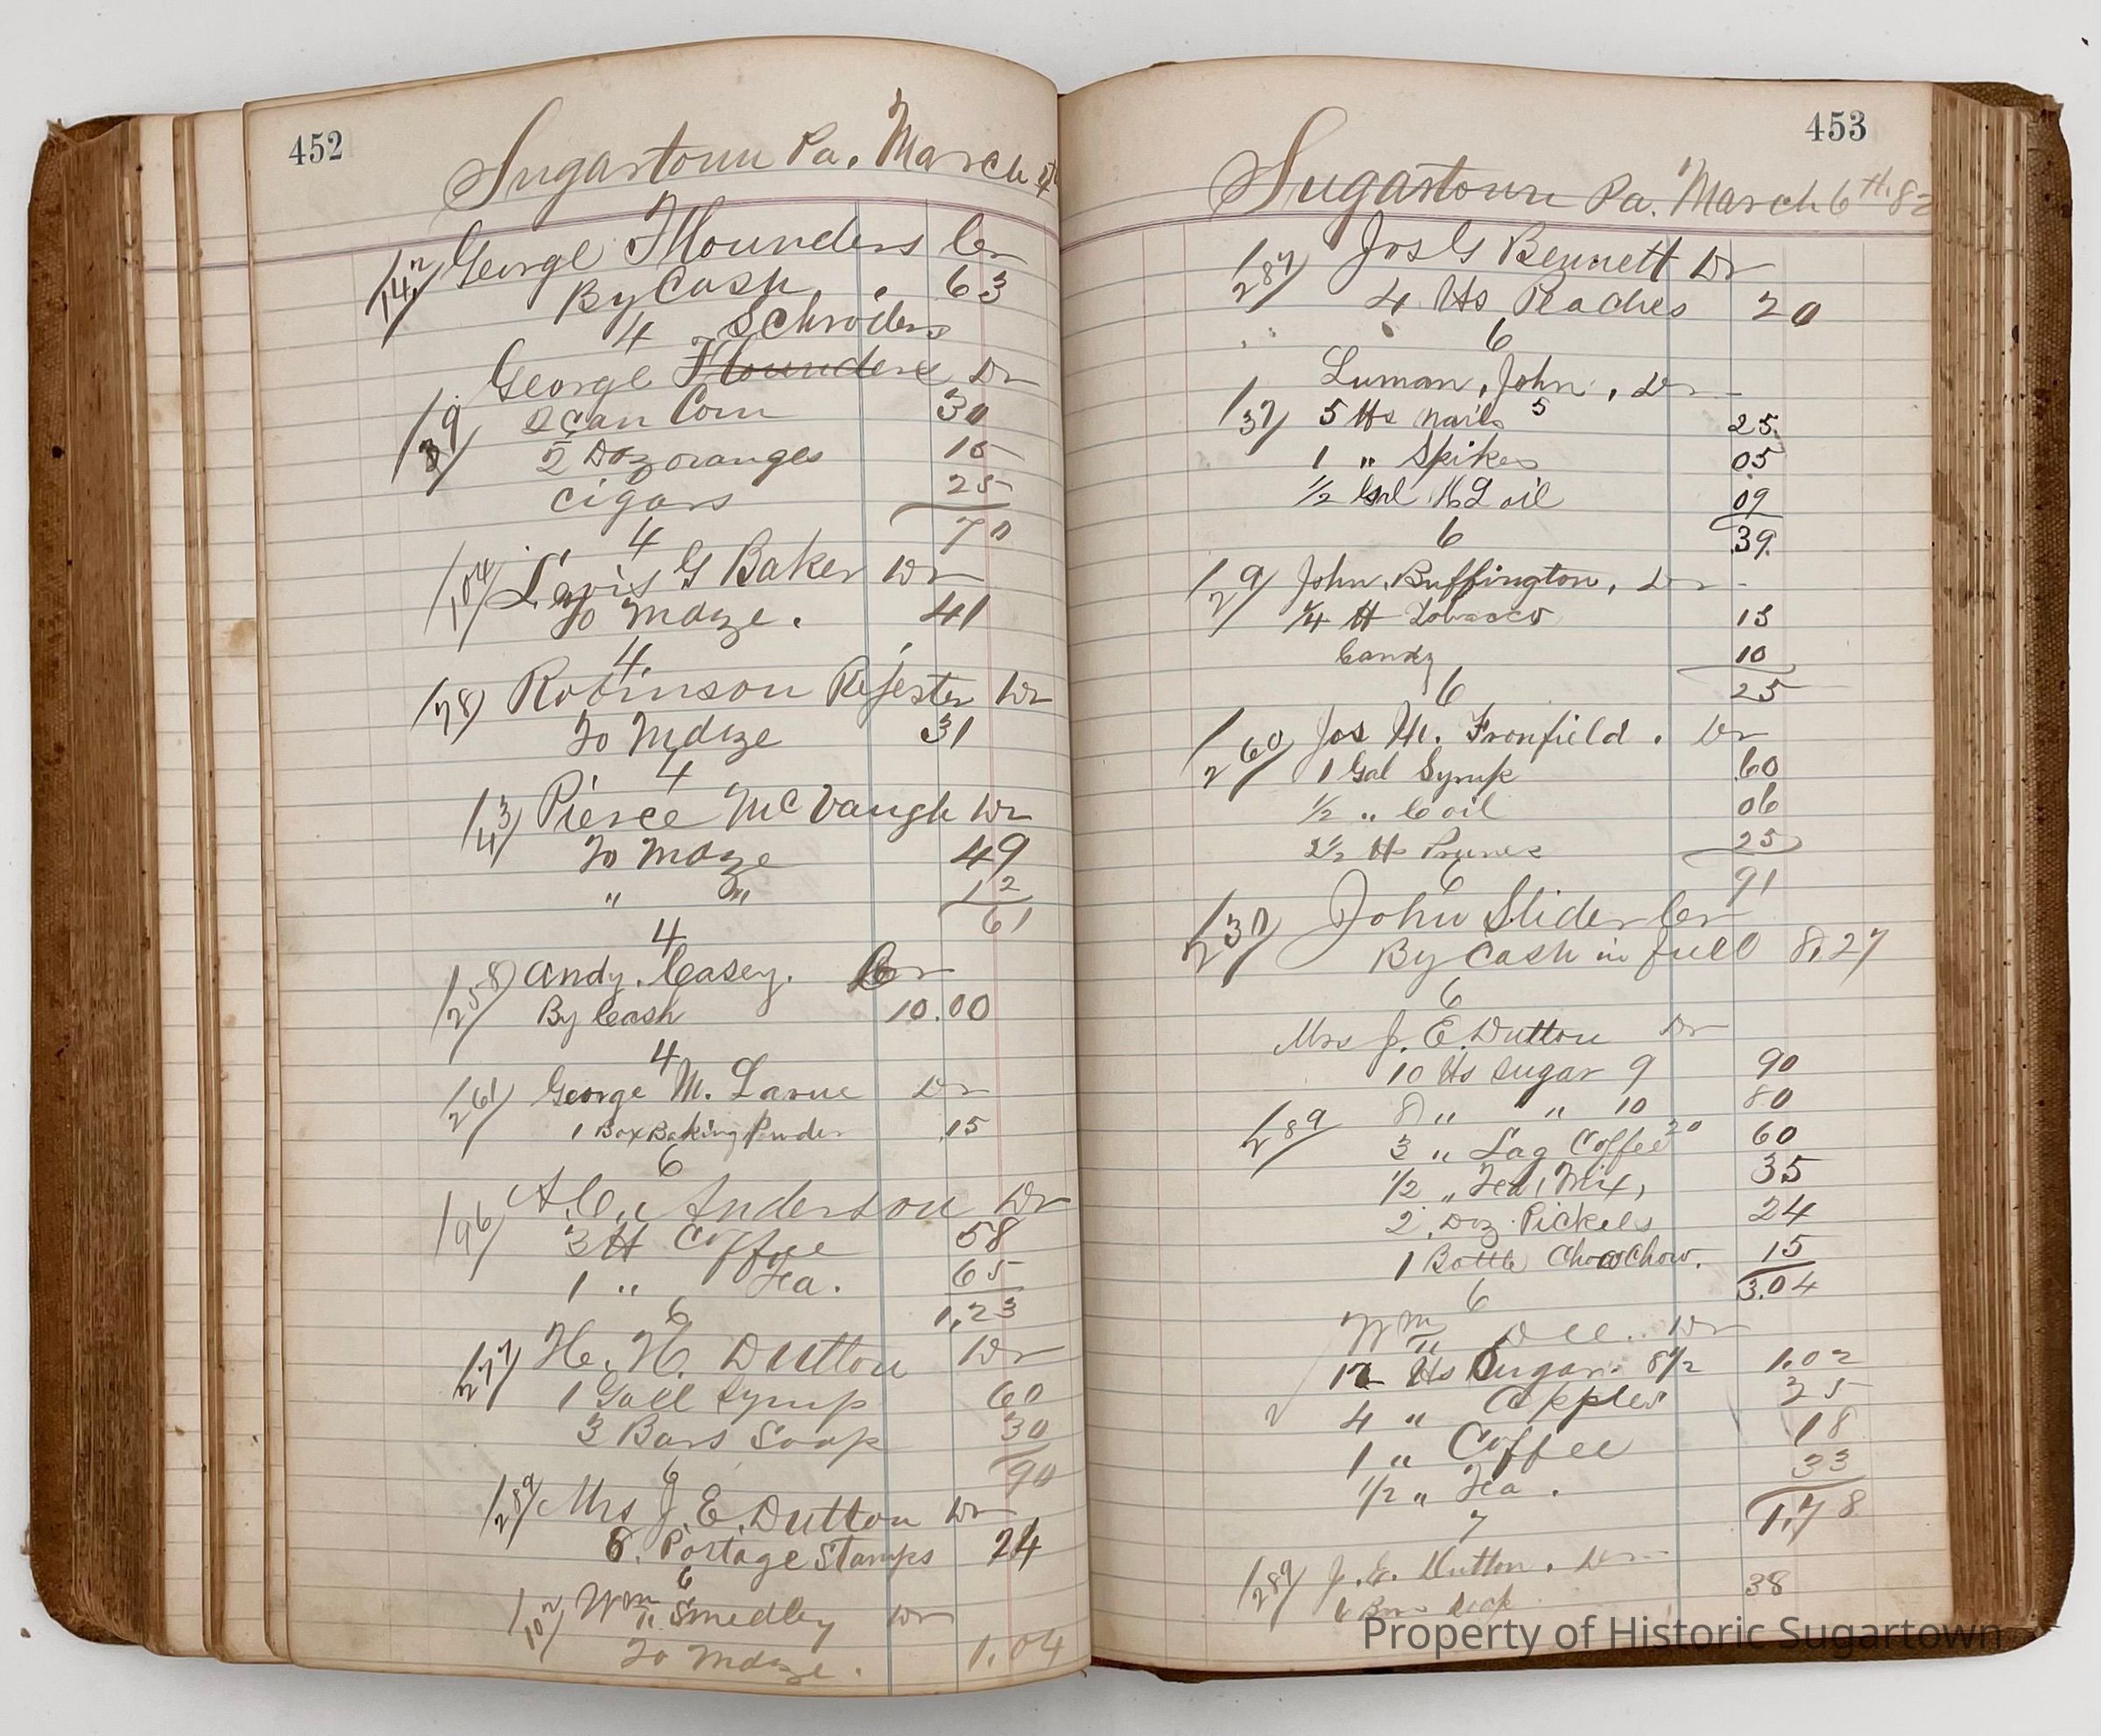 452
Sugartown Pa. March 4
George Flounders Cr
142 By Cash 63
4 Schroders
George Flounders Dr
39 2 Can Corn 30
1/2 Doz oranges 15
cigars 25
70
4
104 Lewis G Baker Dr
To Mdze. 41
4
78 Robinson Rejester Dr
To Mdze 31
4
43 Pierce McVaugh Dr
To Mdze 49
" " 12
61
4
258 Andy. Casey. Cr
By Cash 10.00
4
261 George M. Larue Dr
1 Box Baking Powder .15
6
96 A.C. Anderson Dr
3 tt Coffee 58
1 " Tea. 65
1,23
6
277 H. H. Dutton Dr
1 Gall Syrup 60
3 Bars Soap 30
90
6
289 Mrs J. E. Dutton Dr
8. Postage Stamps 24
6
102 Wm Smedley Dr
To Mdze. 1.04
453
Sugartown Pa. March 6th 82
287 Jos G Bennett Dr
4 tts Peaches 20
6
Luman, John, Dr
37 5 tts nails 5 25
1 " Spikes 05
1/2 Gal oil 09
39
6
29 John Buffington, Dr
1/4 tt Tobacco 15
Candy 10
25
6
260 Jos M. Fronfield. Dr
1 Gal Syrup .60
1/2 " C oil 06
2 1/2 tts Prunes 25
91
6
230 John Slider Cr
By Cash in full 8.27
6
Mrs J. E. Dutton Dr
10 tts Sugar 9 90
8 " " 10 80
289 3 " Lag Coffee 20 60
1/2 " Tea, Mix, 35
2 Doz Pickels 24
1 Bottle Chow Chow. 15
3.04
6
Wm Dec.. Dr
12 tts Sugar 8 1/2 1.02
4 " Apples 25
1 " Coffee 18
1/2 " Tea. 33
1.78
7
289 J. E. Dutton. Dr
6 Bars Soap 38
Property of Historic Sugartown